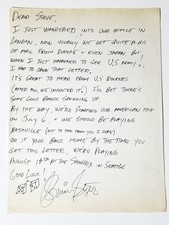 DEAR STEVE,
I JUST WANDERED INTO OUR OFFICE IN
LONDON, NOW USUALLY WE GET QUITE A BIT
OF MAIL FROM EUROPE - EVEN JAPAN BUT
WHEN I JUST HAPPENED TO SEE U.S ARMY!
I HAD TO OPEN THAT LETTER,
IT'S GREAT TO HEAR FROM U.S ROCKERS
(AFTER ALL, WE INVENTED IT). I'LL BET THERE'S
SOME GOOD BANDS SPRINGING UP
BY THE WAY, WE'RE STARTING OUR AMERICAN TOUR
ON JULY 6 - WE SHOULD BE PLAYING
NASHVILLE (NOT TO FAR FROM YOU I HOPE)
OR IF YOUR BACK HOME BY THE TIME YOU
GET THIS LETTER, WE'RE PLAYING
AUGUST 18TH AT THE SHOWBOX IN SEATTLE
GOOD LUCK!
Brian